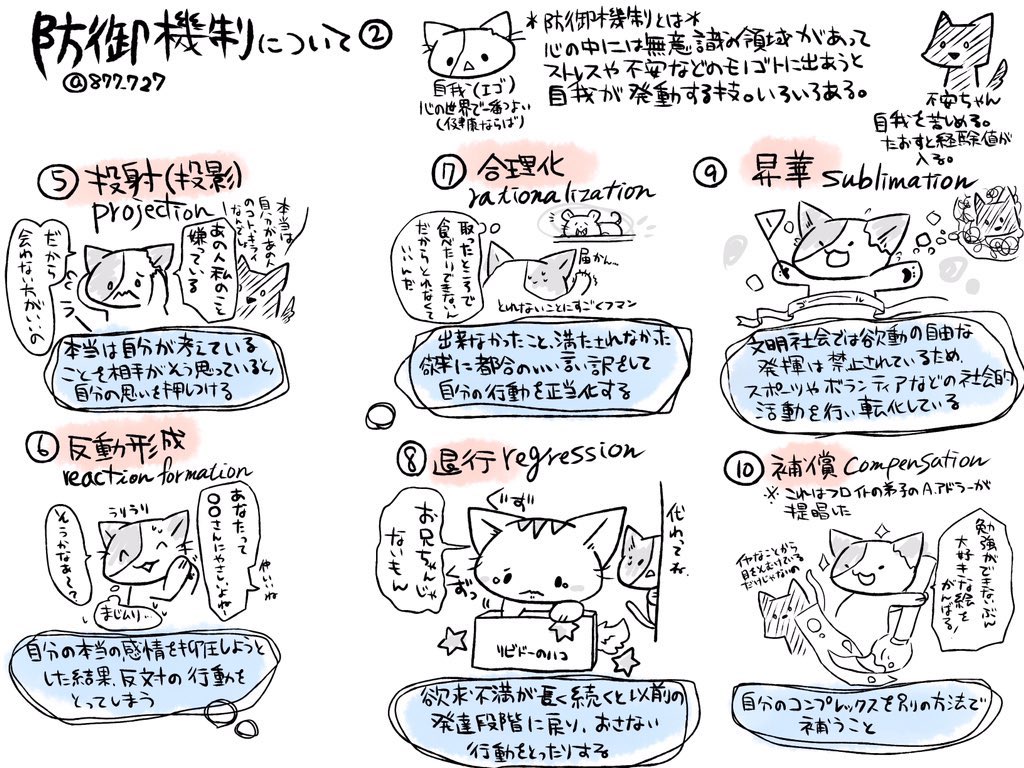 防御機制について②
@877_727
自我(エゴ)
心の世界で一番つよい
(健康ならば)
＊防御機制とは＊
心の中には無意識の領域があって
ストレスや不安などのモノゴトに出あうと
自我が発動する技。いろいろある。
不安ちゃん
自我を苦しめる。
たおすと経験値が
入る。
⑤投射(投影)
projection
本当は
自分があの人
のコト、キライ
なんでしょ
あの人私のこと
嫌っている
だから
会わない方がいいの
本当は自分が考えている
ことを相手がそう思っていると、
自分の思いを押しつける
⑥反動形成
reaction formation
うりうり
あなたって
〇〇さんにやさしいよね
仲いいね
そうかなぁ〜
まじムリ…
自分の本当の感情を抑圧しようと
した結果、反対の行動を
とってしまう
⑦合理化
rationalization
取ったところで
食べたりできないん
だからとれなくて
いいんだ
届かん…
とれないことにすごくフマン
出来なかったこと、満たされなかった
欲求に都合のいい言い訳をして
自分の行動を正当化する
⑧退行 regression
ぐず
お兄ちゃんじゃ
ないもん
ずっ
代わってね
リビドーのハコ
欲求不満が長く続くと以前の
発達段階に戻り、おさない
行動をとったりする
⑨昇華 sublimation
ゴール
文明社会では欲動の自由な
発揮は禁止されているため、
スポーツやボランティアなどの社会的
活動を行い転化している
⑩補償 compensation
※これはフロイトの弟子のA.アドラーが
提唱した
イヤなことから
目をそむけている
だけじゃないの
勉強ができないぶん
大好きな絵を
がんばる!
自分のコンプレックスを別の方法で
補うこと